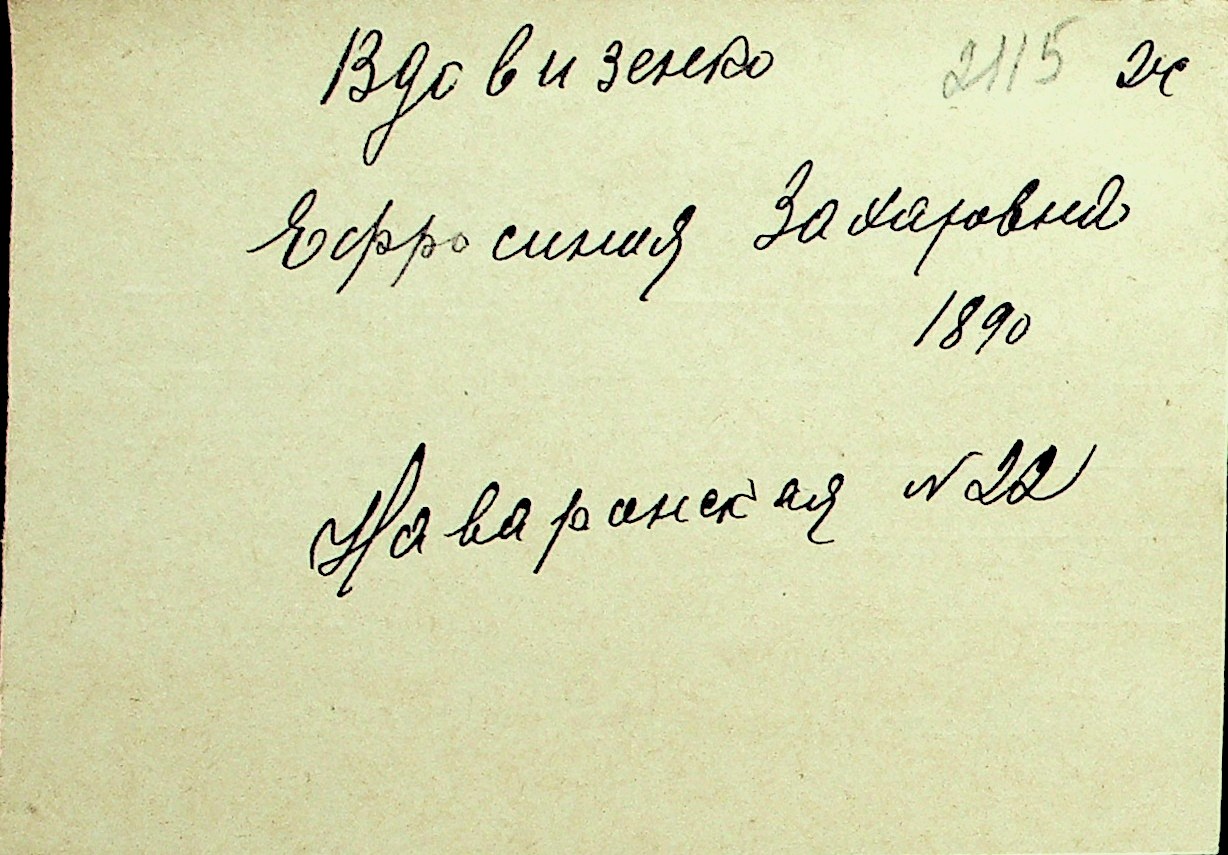 Вдовизенко 2115 2ж
Ефросиния Захаровна
1890
Наваринская №22